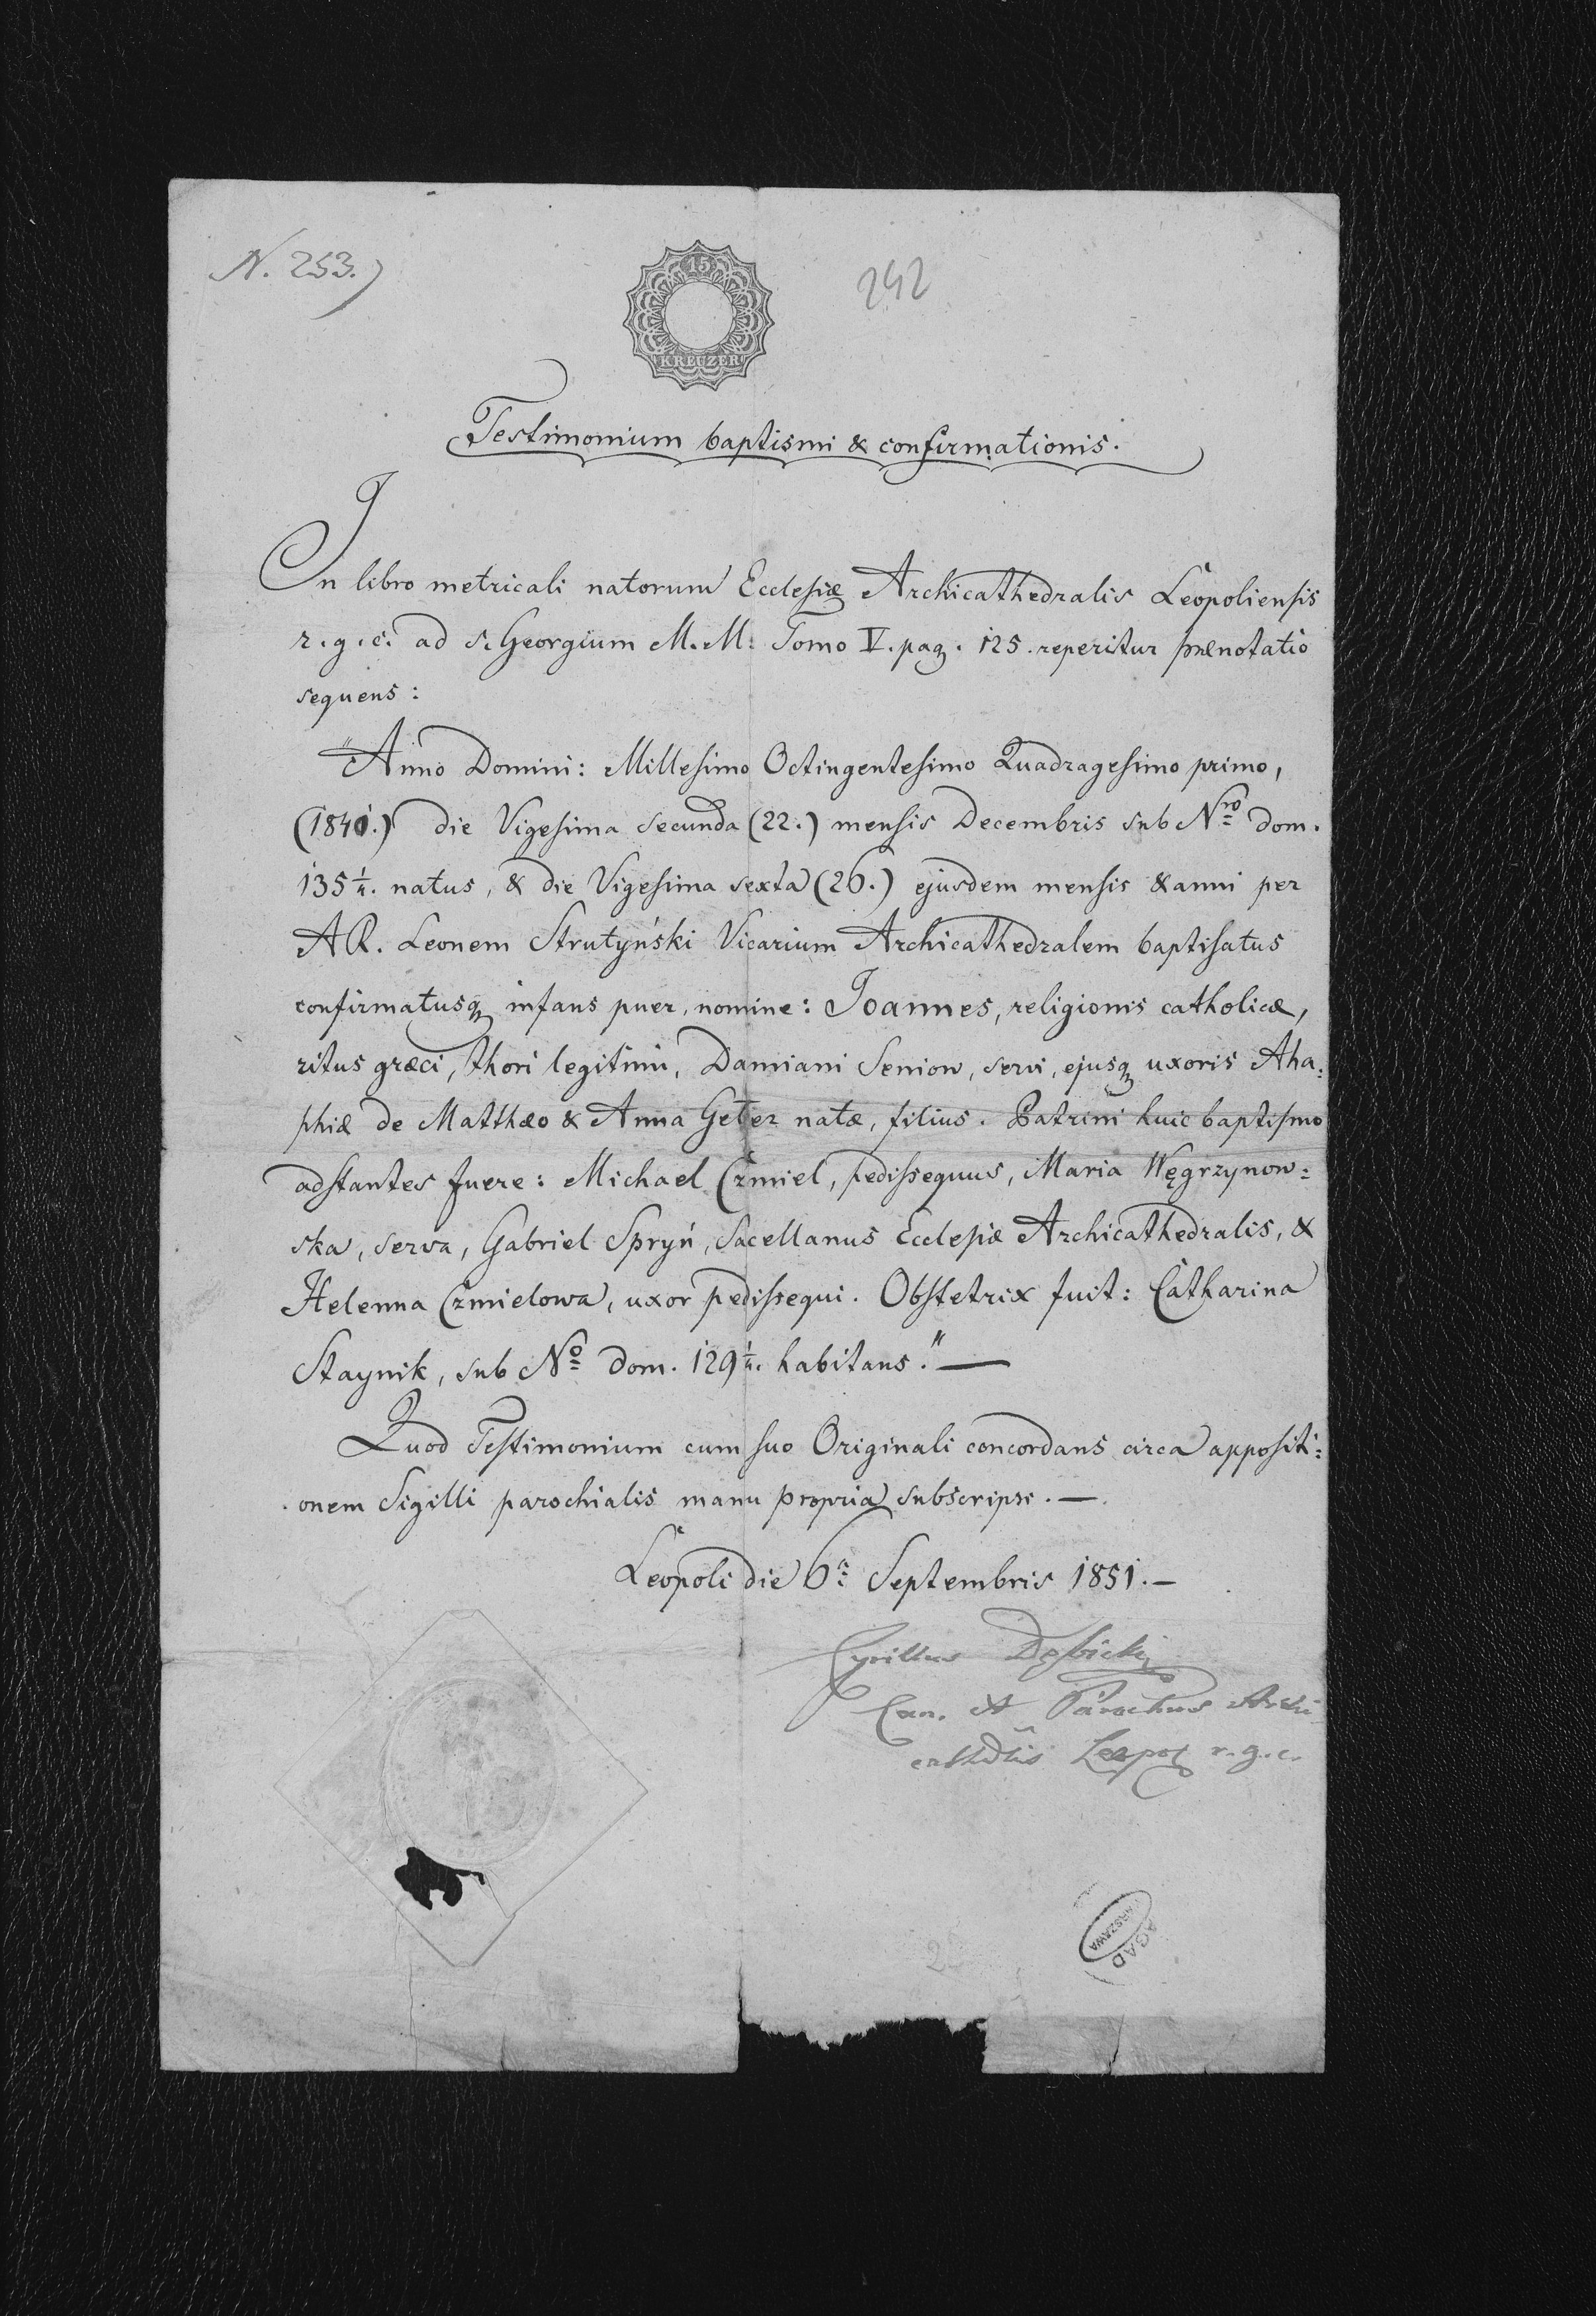 N. 253.)
242
15
KREUZER
Testimonium baptismi & confirmationis.
In libro metricali natorum Ecclesiæ Archicathedralis Leopoliensis
r. g. c. ad S. Georgium M. M: Tomo V. pag. 125. reperitur prænotatio
sequens:
"Anno Domini: Millesimo Octingentesimo Quadragesimo primo,
(1841.) die Vigesima secunda (22.) mensis Decembris sub Nro dom.
135 1/4. natus, & die Vigesima sexta (26.) ejusdem mensis & anni per
AR. Leonem Strutyński Vicarium Archicathedralem baptisatus
confirmatusq infans puer, nomine: Joannes, religionis catholicæ,
ritus græci, thori legitimi, DamianiSeniow, servi, ejusq uxoris Aha=
phiæ de Matthæo & Anna Geter natæ, filius. Patrini huic baptismo
adstantes fuere: Michael Czmiel, pedissequus, Maria Węgrzynow=
ska, serva, Gabriel Spryń, Sacellanus Ecclesiæ Archicathedralis, &
Helenna Czmielowa, uxor pedissequi. Obstetrix fuit: Catharina
Staynik, sub No dom. 129 1/4. habitans." —
Quod Testimonium cum suo Originali concordans circa appositi=
onem Sigilli parochialis manu propria subscripsi. —
Leopoli die 6a Septembris 1851. —
Cyrillus Dębicki
Can. et Parochus Archi
cathdlis Leopol r. g. c.
AGAD
WARSZAWA